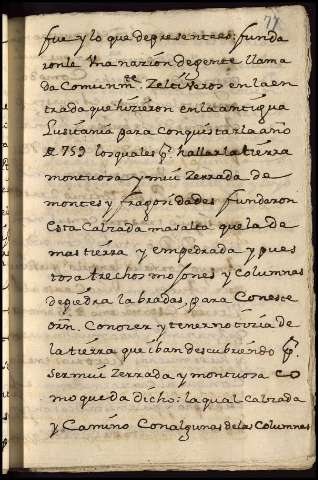 77
fue y lo que de presente es: funda
ronle Vna nazion de gente llama
da Comunmte. Zeltiveros en la en
trada que hizieron en la antigua
Lusitania para Conquistarla año
de 759 los quales pr. hallar la tierra
montuosa y mui Zerrada de
montes y fragosidades fundaron
esta Calzada mas alta que la de
mas tierra y empedrada y pues
tos a trechos mojones y columnas
de piedra labradas, para Con este
orn. Conozer y tener notizia de
la tierra que iban descubriendo pr.
ser mui Zerrada y montuosa co
mo queda dicho: la qual calzada
y Camino Con algunas de las Columnas